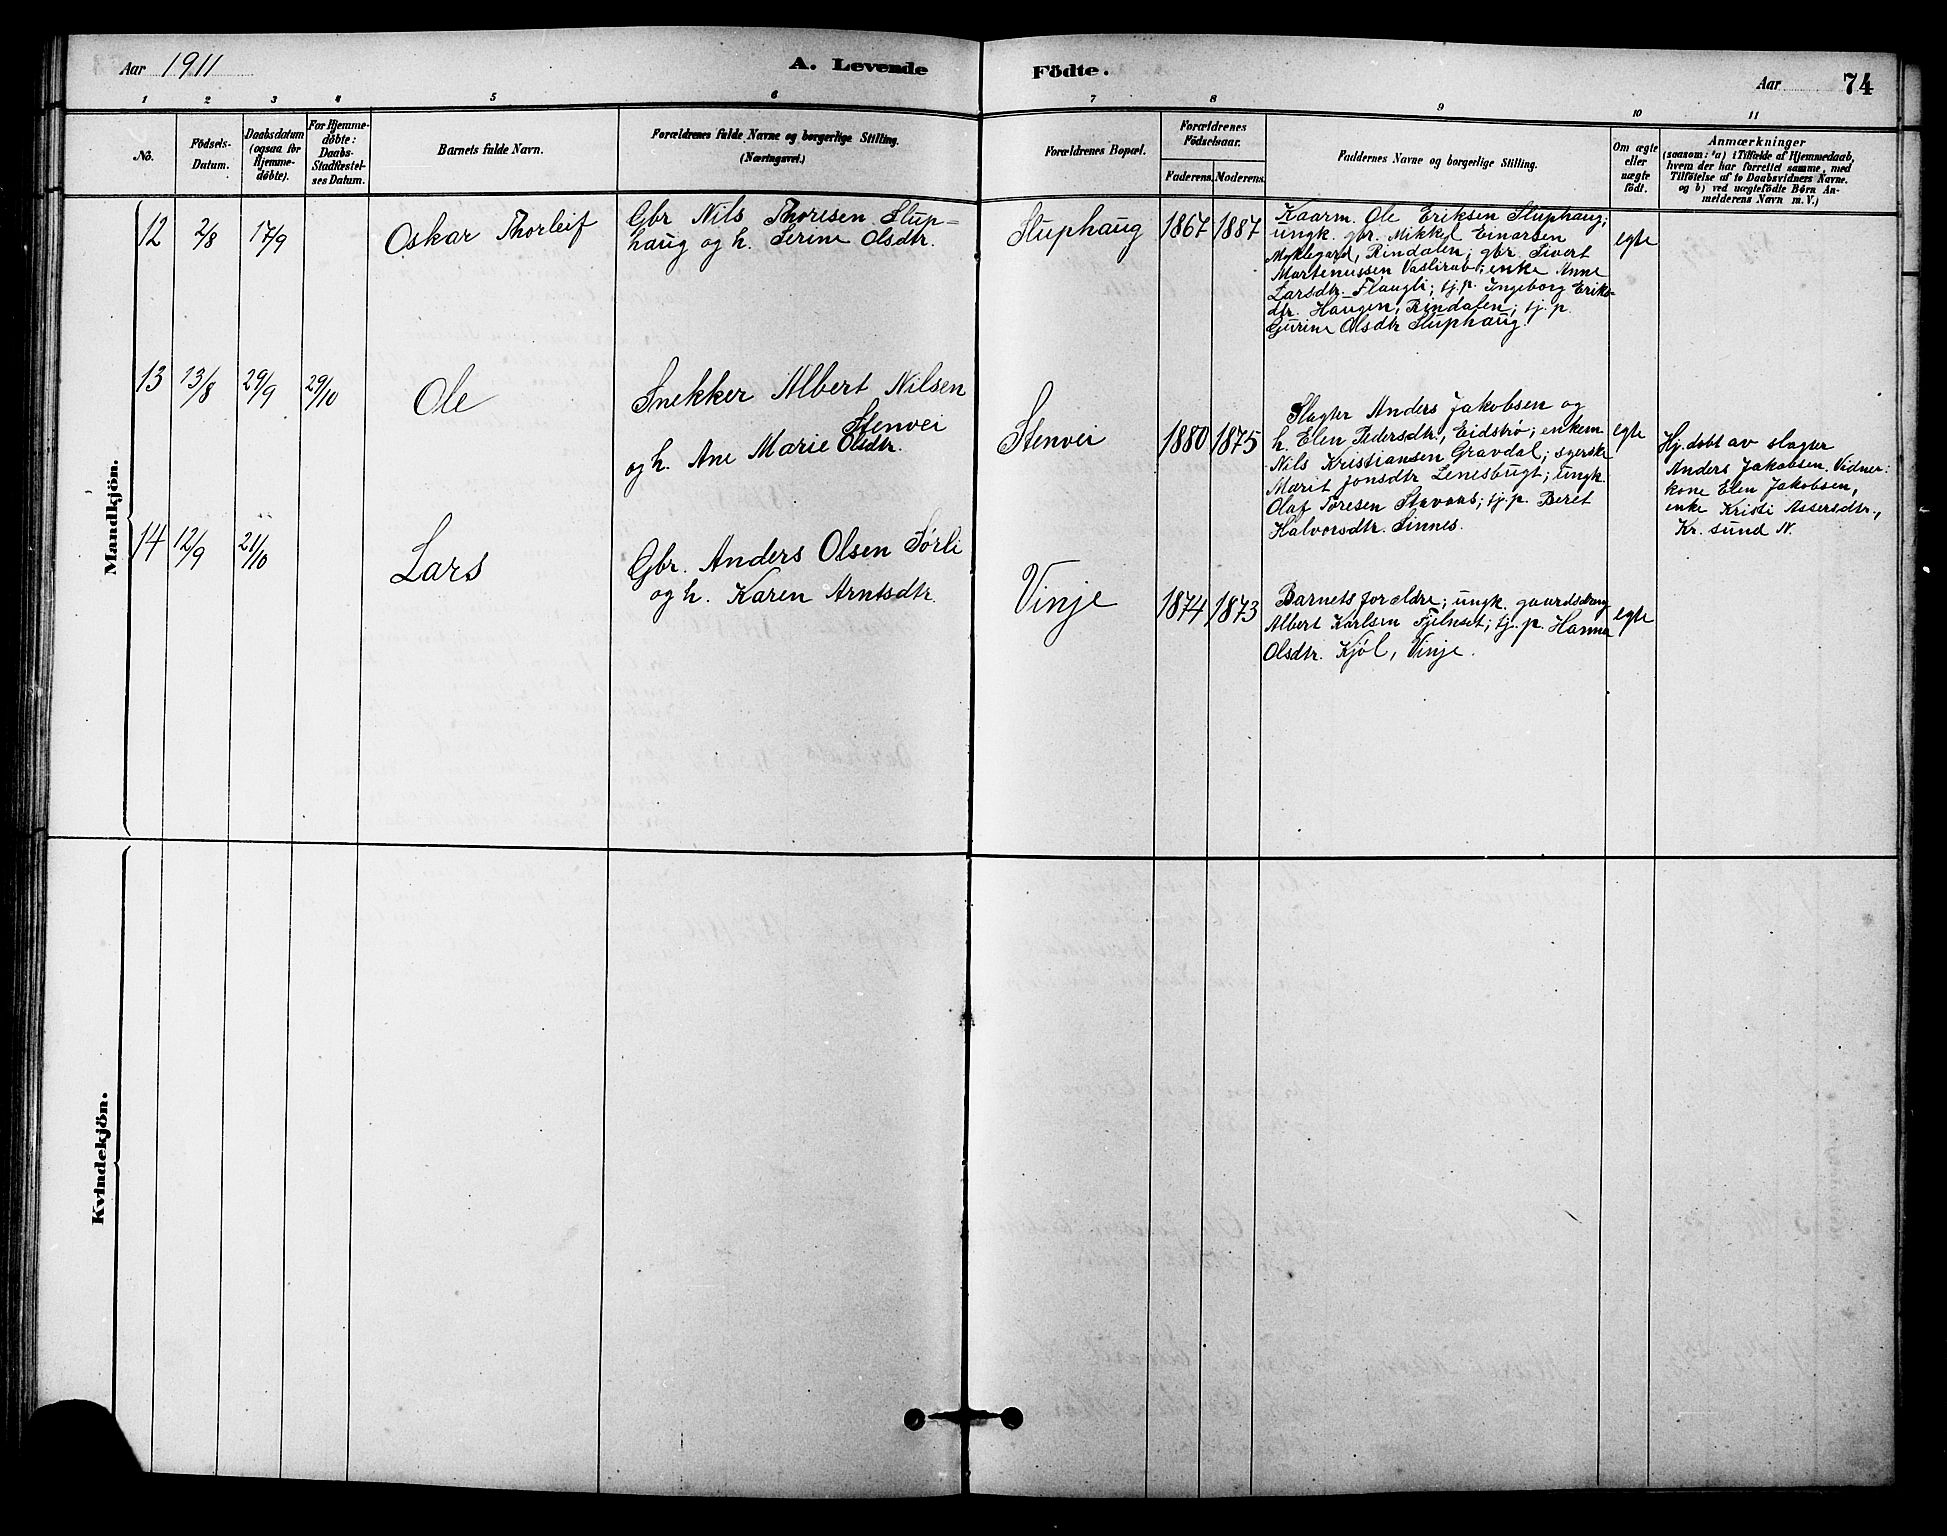 Aar 1911
A. Levende
Födte.
Aar
74
1 2 3 4 5 6 7 8 9 10 11
No.
Födsels-
Datum.
Daabsdatum
(ogsaa for
Hjemme-
döbte).
For Hjemme-
döbte:
Daabs-
Stadfæstel-
ses Datum.
Barnets fulde Navn.
Forældrenes fulde Navne og borgerlige Stilling.
(Næringsvei.)
Forældrenes Bopæl.
Forældrenes
Födselsaar.
Faderens. Moderens.
Faddernes Navne og borgerlige Stilling.
Om ægte
eller
uægte
födt.
Anmærkninger
(saasom: a) i Tilfælde af Hjemmedaab,
hvem der har forrettet samme, med
Tilföielse af to Daabsvidners Navne.
og b) ved uægtefödte Börn An-
melderens Navn m. V.)
Mandkjön.
12
2/8
17/9
Oskar Thorleif
Gbr Nils Thoresen Slup-
haug og h. Serine Olsdtr.
Sluphaug
1867 1887
Kaarm. Ole Eriksen Sluphaug;
ungk. gbr. Mikkel Einarsen
Myklegard, Rindalen; gbr. Sivert
Martenussen; enke Anne
Larsdtr. Flaugli; tj.p. Ingeborg Eriks-
dtr. Haugen, Rindalen; tj.p.
Gurine Olsdtr Sluphaug.
egte
13
13/8
29/9
29/10
Ole
Snekker Albert Nilsen
Stenvei
og h. Ane Marie Olsdtr.
Stenvei
1880 1875
Slagter Anders Jakobsen og
h. Elen Pedersdtr., Eidstrø; enkem
Nils Kristiansen Gravdal; syerske
Marit Jonsdtr Lenesbugt; ungk.
Olaf Toresen; tj.p. Beret
Halvorsdtr. Sinnes.
egte
Hj.døbt av slagter
Anders Jakobsen. Vidner:
kone Elen Jakobsen,
enke Kristi Assersdtr.,
Kr. sund N.
14
12/9
21/10
Lars
Gbr. Anders Olsen Sørli
og h. Karen Arntsdtr.
Vinje
1874 1873
Barnets forældre; ungk. gaardsdreng
Albert Karlsen Fjelnset; tj.p. Hanna
Olsdtr. Kjøl, Vinje.
egte
Kvindekjön.